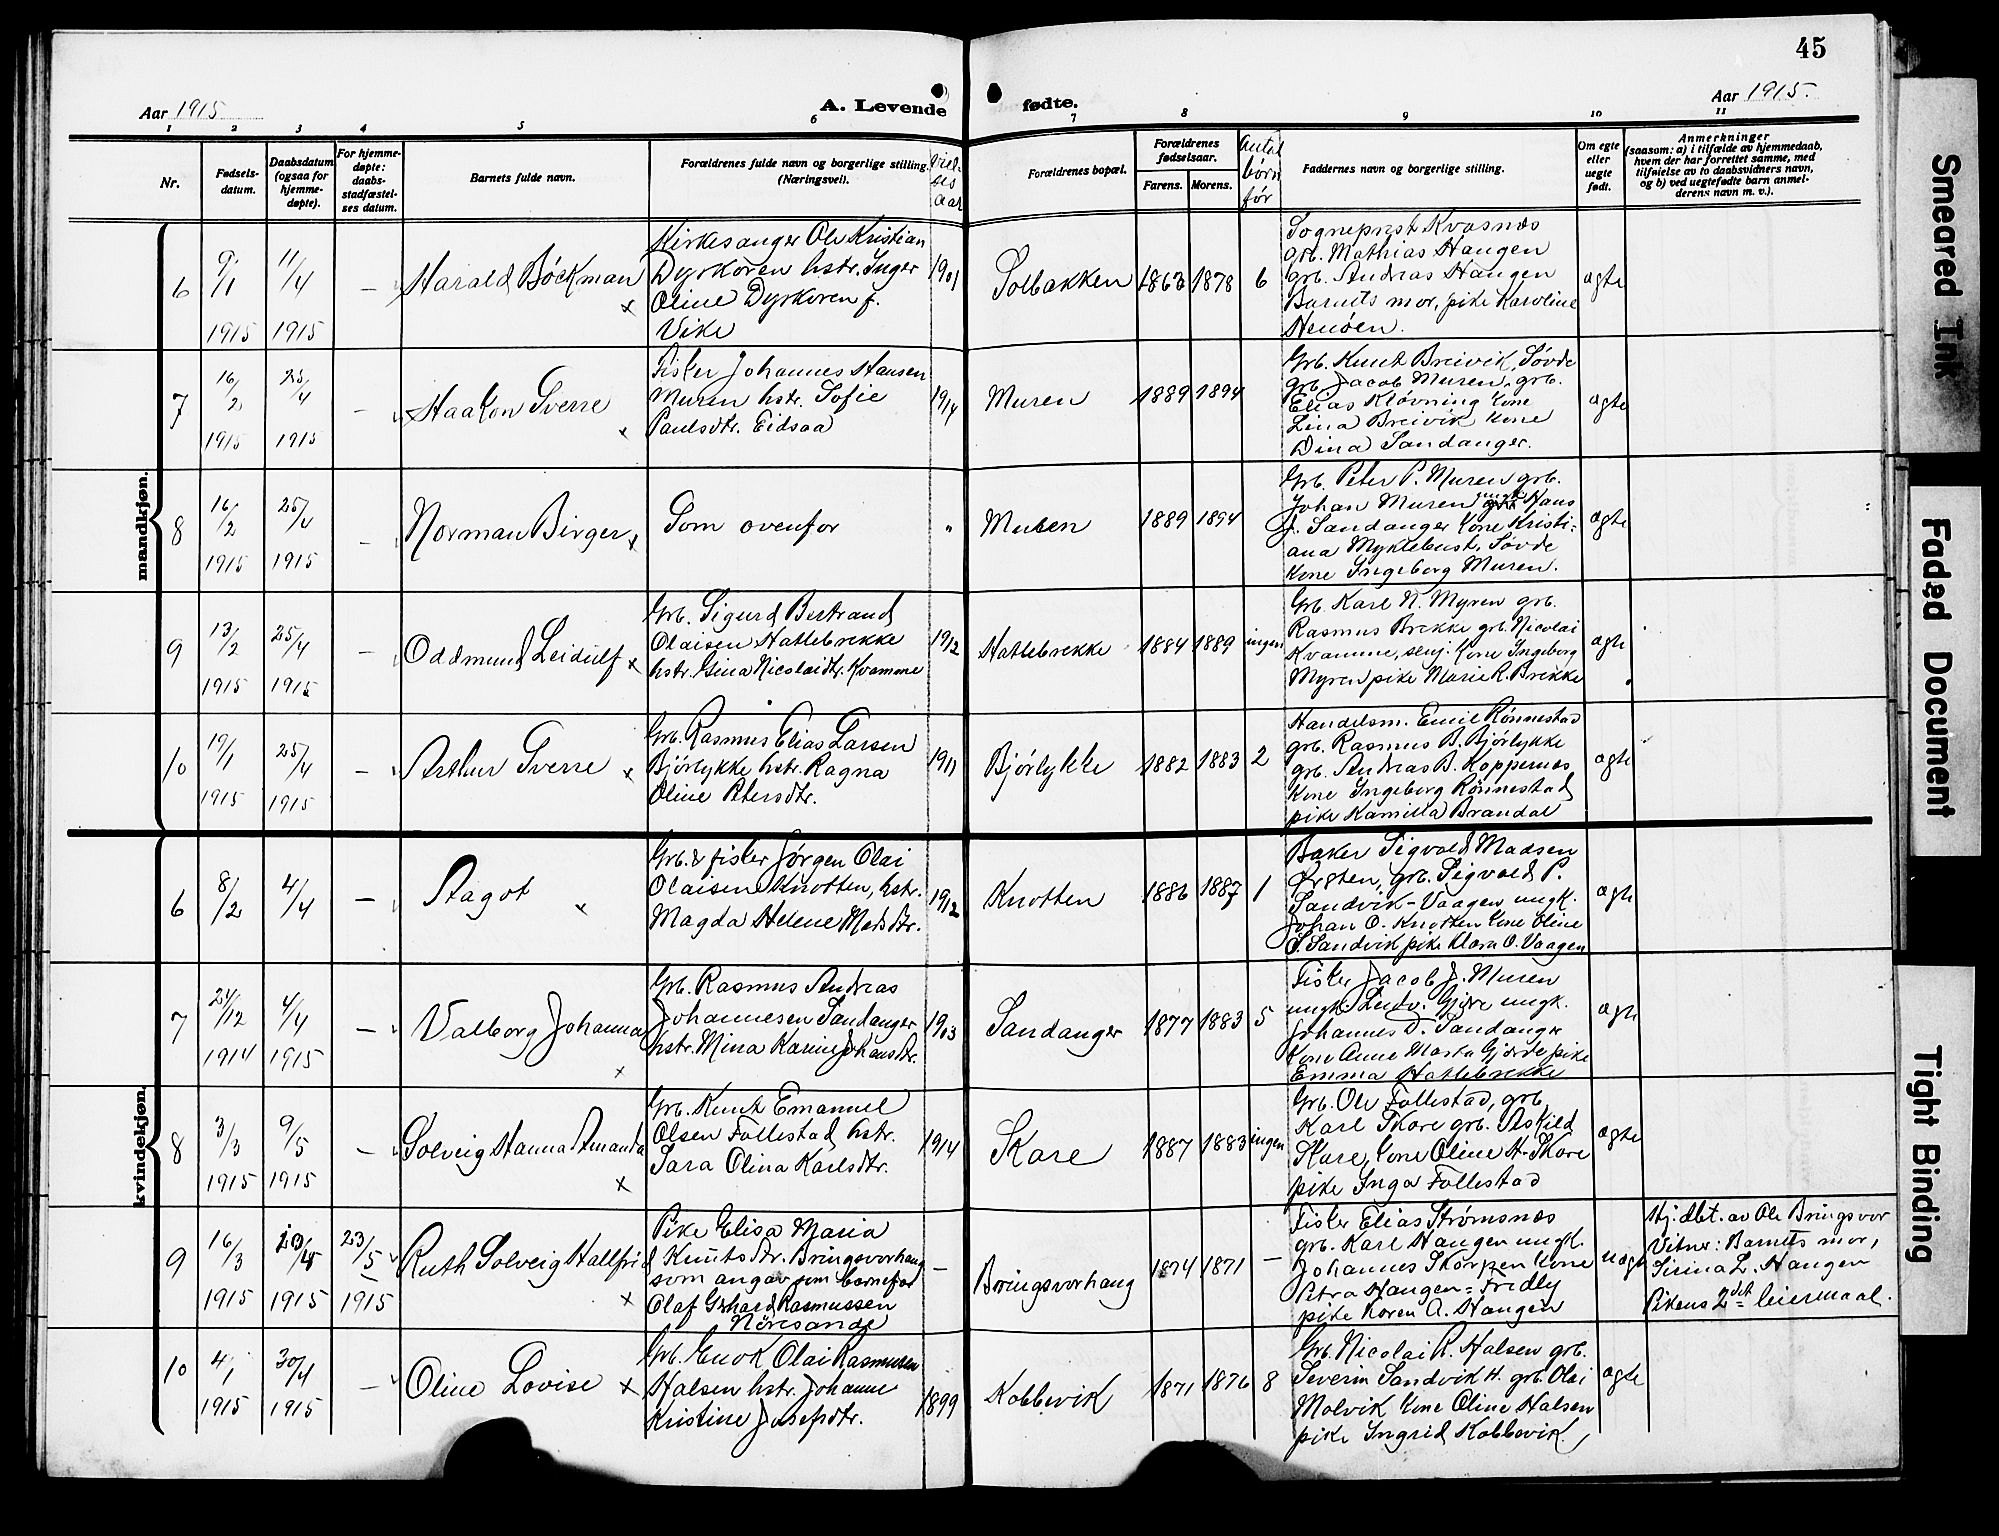 45
Aar 1915
A. Levende
fødte.
Aar 1915.
1 2 3 4 5 6 7 8 9 10 11
Nr.
Fødsels-
datum.
Daabsdatum
(ogsaa for
hjemme-
døpte).
For hjemme-
døpte:
daabs-
stadfæstel-
ses datum.
Barnets fulde navn.
Forældrenes fulde navn og borgerlige stilling.
(Næringsvei).
Viel-
ses
aar
Forældrenes bopæl.
Forældrenes
fødselsaar.
Farens. Morens.
Antal
børn
før
Faddernes navn og borgerlige stilling.
Om egte
eller
uegte
født.
Anmerkninger
(saasom: a) i tilfælde av hjemmedaab,
hvem der har forrettet samme, med
tilføielse av to daabsvidners navn,
og b) ved uegtefødte barn anmel-
derens navn m. v.).
mandkjøn.
6
9/1
1915
11/4
1915
—
Harald Böckman
x
Kirkesanger Ole Kristian
Dyrkoren hstr. Inger
Oline Dyrkoren f.
Vike
1901
Solbakken
1863 1878 6
Sogneprest Kvasnes
grb. Mathias Haugen
grb. Andreas Haugen
Barnets mor, pike Karoline
Henöen.
ægte
7
16/2
1915
25/4
1915
—
Haakon Sverre
x
Fisker Johannes Hansen
Muren hstr. Sofie
Paulsdtr. Eidsaa
1914
Muren
1889 1894
Grb. Knut Breivik, Søvde
grb. Jacob Muren, grb.
Elias Kløvning kone
Lina Breivik kone
Dina Sandanger.
ægte
8
16/2
1915
25/4
1915
—
Norman Birger
x
Som ovenfor
"
Muren
1889 1894
Grb. Peter P. Muren grb.
Johan Muren ungk. Hans
J. Sandanger kone Kristi-
ana Myklebust, Søvde
kone Ingeborg Muren.
ægte
9
13/2
1915
25/4
1915
—
Oddmund Leidulf
x
Grb. Sigurd Bertrand
Olaisen Hattebrekke
hstr. Gina Nicolaidtr. Kvamme
1912
Hattebrekke
1884 1889 ingen
Grb. Karl N. Myren grb.
Rasmus Brekke grb. Nicolai
Kvamme, senj. kone Ingeborg
Myren pike Marie R. Brekke
ægte
10
19/1
1915
25/4
1915
—
Arthur Sverre
x
Grb. Rasmus Elias Larsen
Bjørlykke hstr. Ragna
Oline Petersdtr.
1911
Bjørlykke
1882 1883 2
Handelsm. Emil Rönnestad
grb. Rasmus B. Bjørlykke
grb. Andreas B. Koppernes
kone Ingeborg Rönnestad
pike Kamilla Brandal
ægte
kvindekjøn.
6
8/2
4/4
—
Dagot
x
Grb. & fisker Jørgen Olai
Olaisen Knotten, hstr.
Magda Helene Madsdtr.
1912
Knotten
1886 1887 1
Baker Sigvald Madsen
Ørsten, grb. Sigvald P.
Sandvik-Vaagen ungk.
Johan O. Knotten kone Oline
S. Sandvik pike Klara O. Vaagen
ægte
7
24/12
1914
4/4
1915
—
Valborg Johanna
x
Grb. Rasmus Andreas
Johannesen Sandanger
hstr. Mina Karine Johansdtr.
1903
Sandanger
1877 1883 5
Fisker Jacob J. Muren
ungk. Ludv. Gjöre ungk.
Johannes D. Sandanger
kone Anne Marta Gjørde pike
Emma Hattebrekke
ægte
8
3/3
1915
9/5
1915
—
Solveig Hanna Amanda
x
Grb. Knut Emanuel
Olsen Follestad hstr.
Sara Olina Karlsdtr.
1914
Skare
1887 1883 ingen
Grb. Ole Follestad, grb.
Karl Skare grb. Askild
Skare, kone Oline H. Skare
pike Inga Follestad
ægte
9
16/3
1915
1915
23/5
1915
Ruth Solveig Hallfrid
x
Pike Elisa Maria
Knutsdtr. Bringsvorhaug
som angav som barnefar
Olaf Gerhard Rasmussen
Nöresande
—
Bringsvorhaug
1874 1871 —
Fisker Elias Strømsnes
grb. Karl Haugen ungk.
Johannes Skorpen kone
Petra Haugen = Fredly
pike Karen A. Haugen
uægte
Hj.dbt. av Ole Bringsvor
Vitner: Barnets mor,
Sirina L. Haugen
Pikens 2det leiermaal.
10
4/1
1915
30/4
1915
—
Oline Lovise
x
Grb. Enok Olai Rasmussen
Halsen hstr. Johanne
Kristine Josefsdtr.
1899
Kobbevik
1871 1876 8
Grb. Nicolai R. Halsen grb.
Severin Sandvik H. grb. Olai
Molvik kone Oline Halsen
pike Ingrid Kobbevik
ægte
Smeared Ink
Faded Document
Tight Binding